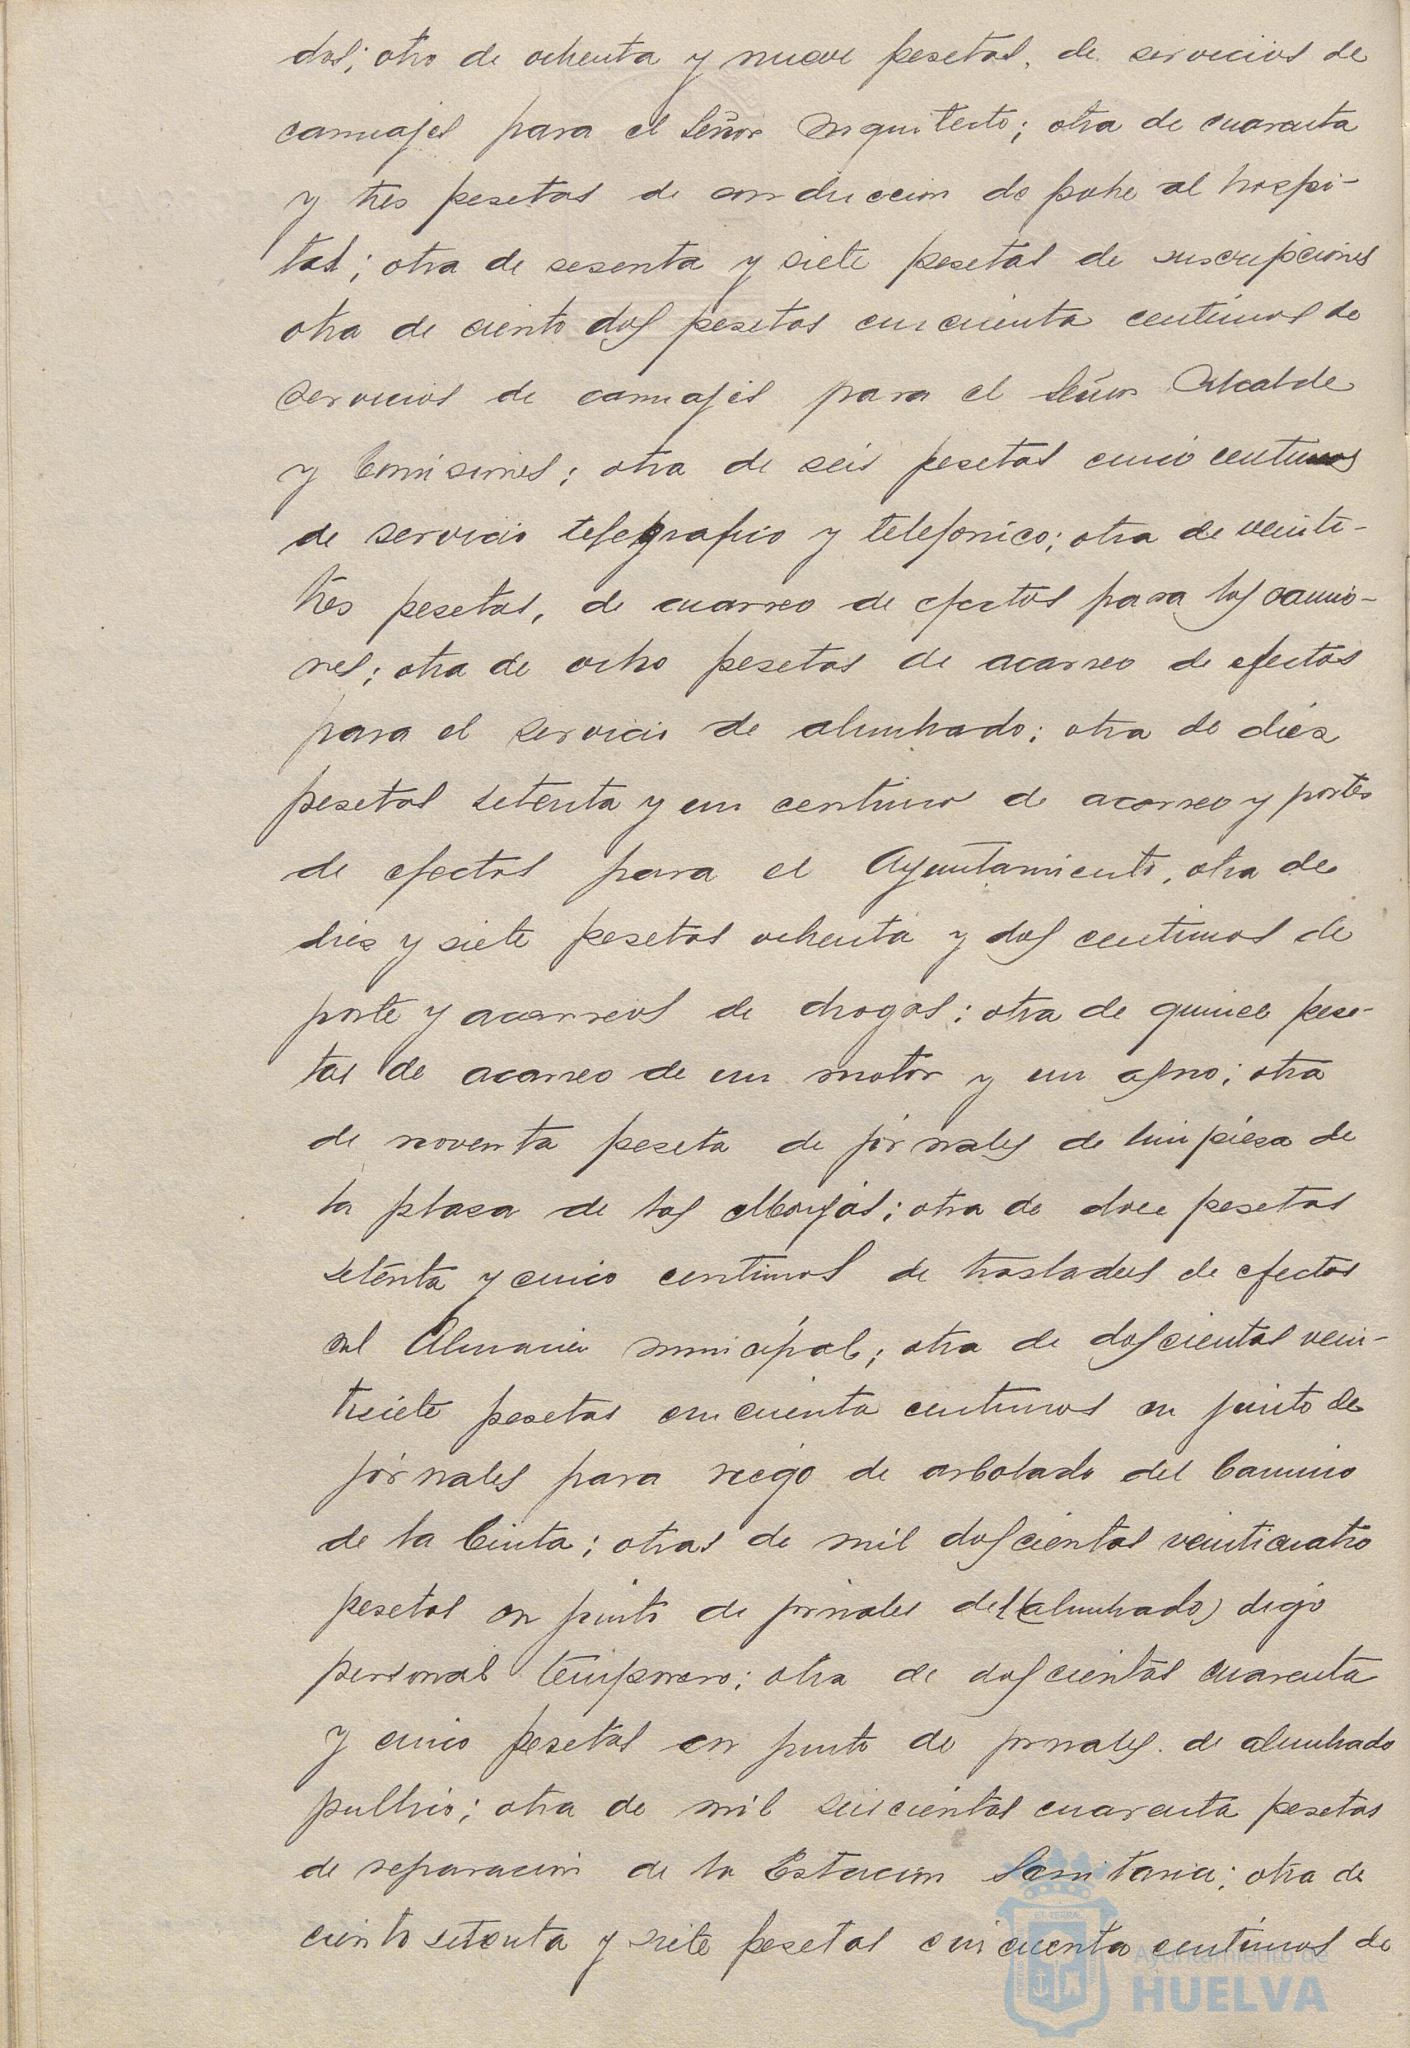 dos; otro de ochenta y nueve pesetas, de servicios de
carruajes para el Señor Arquitecto; otra de cuarenta
y tres pesetas de conduccion de pobre al hospi-
tal; otra de sesenta y siete pesetas de suscripciones
otra de ciento dos pesetas cincuenta centimos de
servicios de carruajes para el Señor Alcalde
y Comisiones; otra de seis pesetas cinco centimos
de servicio telegrafico y telefonico; otra de veinte-
tres pesetas, de acarreo de efectos para los camio-
nes; otra de ocho pesetas de acarreo de efectos
para el servicio de alumbrado; otra de diez
pesetas setenta y un centimo de acarreo y portes
de efectos para el Ayuntamiento, otra de
diez y siete pesetas ochenta y dos centimos de
porte y acarreos de drogas; otra de quince pese-
tas de acarreo de un motor y un asno; otra
de noventa peseta de jornales de limpieza de
la plaza de las Monjas; otra de doce pesetas
setenta y cinco centimos de traslados de efectos
al Almacen municipal; otra de doscientas vein-
tisiete pesetas cincuenta centimos en junto de
jornales para riego de arbolado del Camino
de la Cinta; otras de mil doscientas veinticuatro
pesetas en junto de jornales del (alumbrado) digo
personal temporero; otra de doscientas cuarenta
y cinco pesetas en junto de jornales de alumbrado
publico; otra de mil seiscientas cuarenta pesetas
de reparacion de la Estacion Sanitaria; otra de
ciento setenta y siete pesetas cincuenta centimos de
Ayuntamiento de
HUELVA